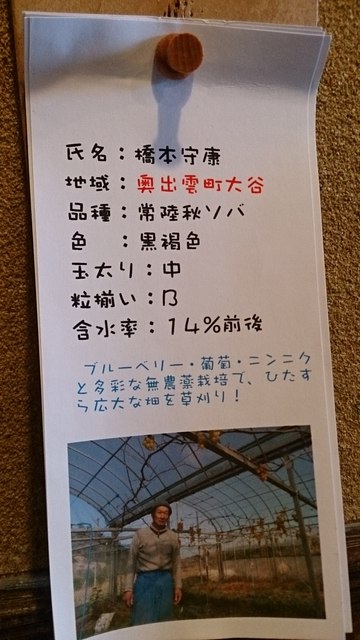 氏名：橋本守康
地域：奥出雲町大谷
品種：常陸秋ソバ
色　：黒褐色
玉太り：中
粒揃い：B
含水率：14%前後
ブルーベリー・葡萄・ニンニク
と多彩な無農薬栽培で、ひたす
ら広大な畑を草刈り！